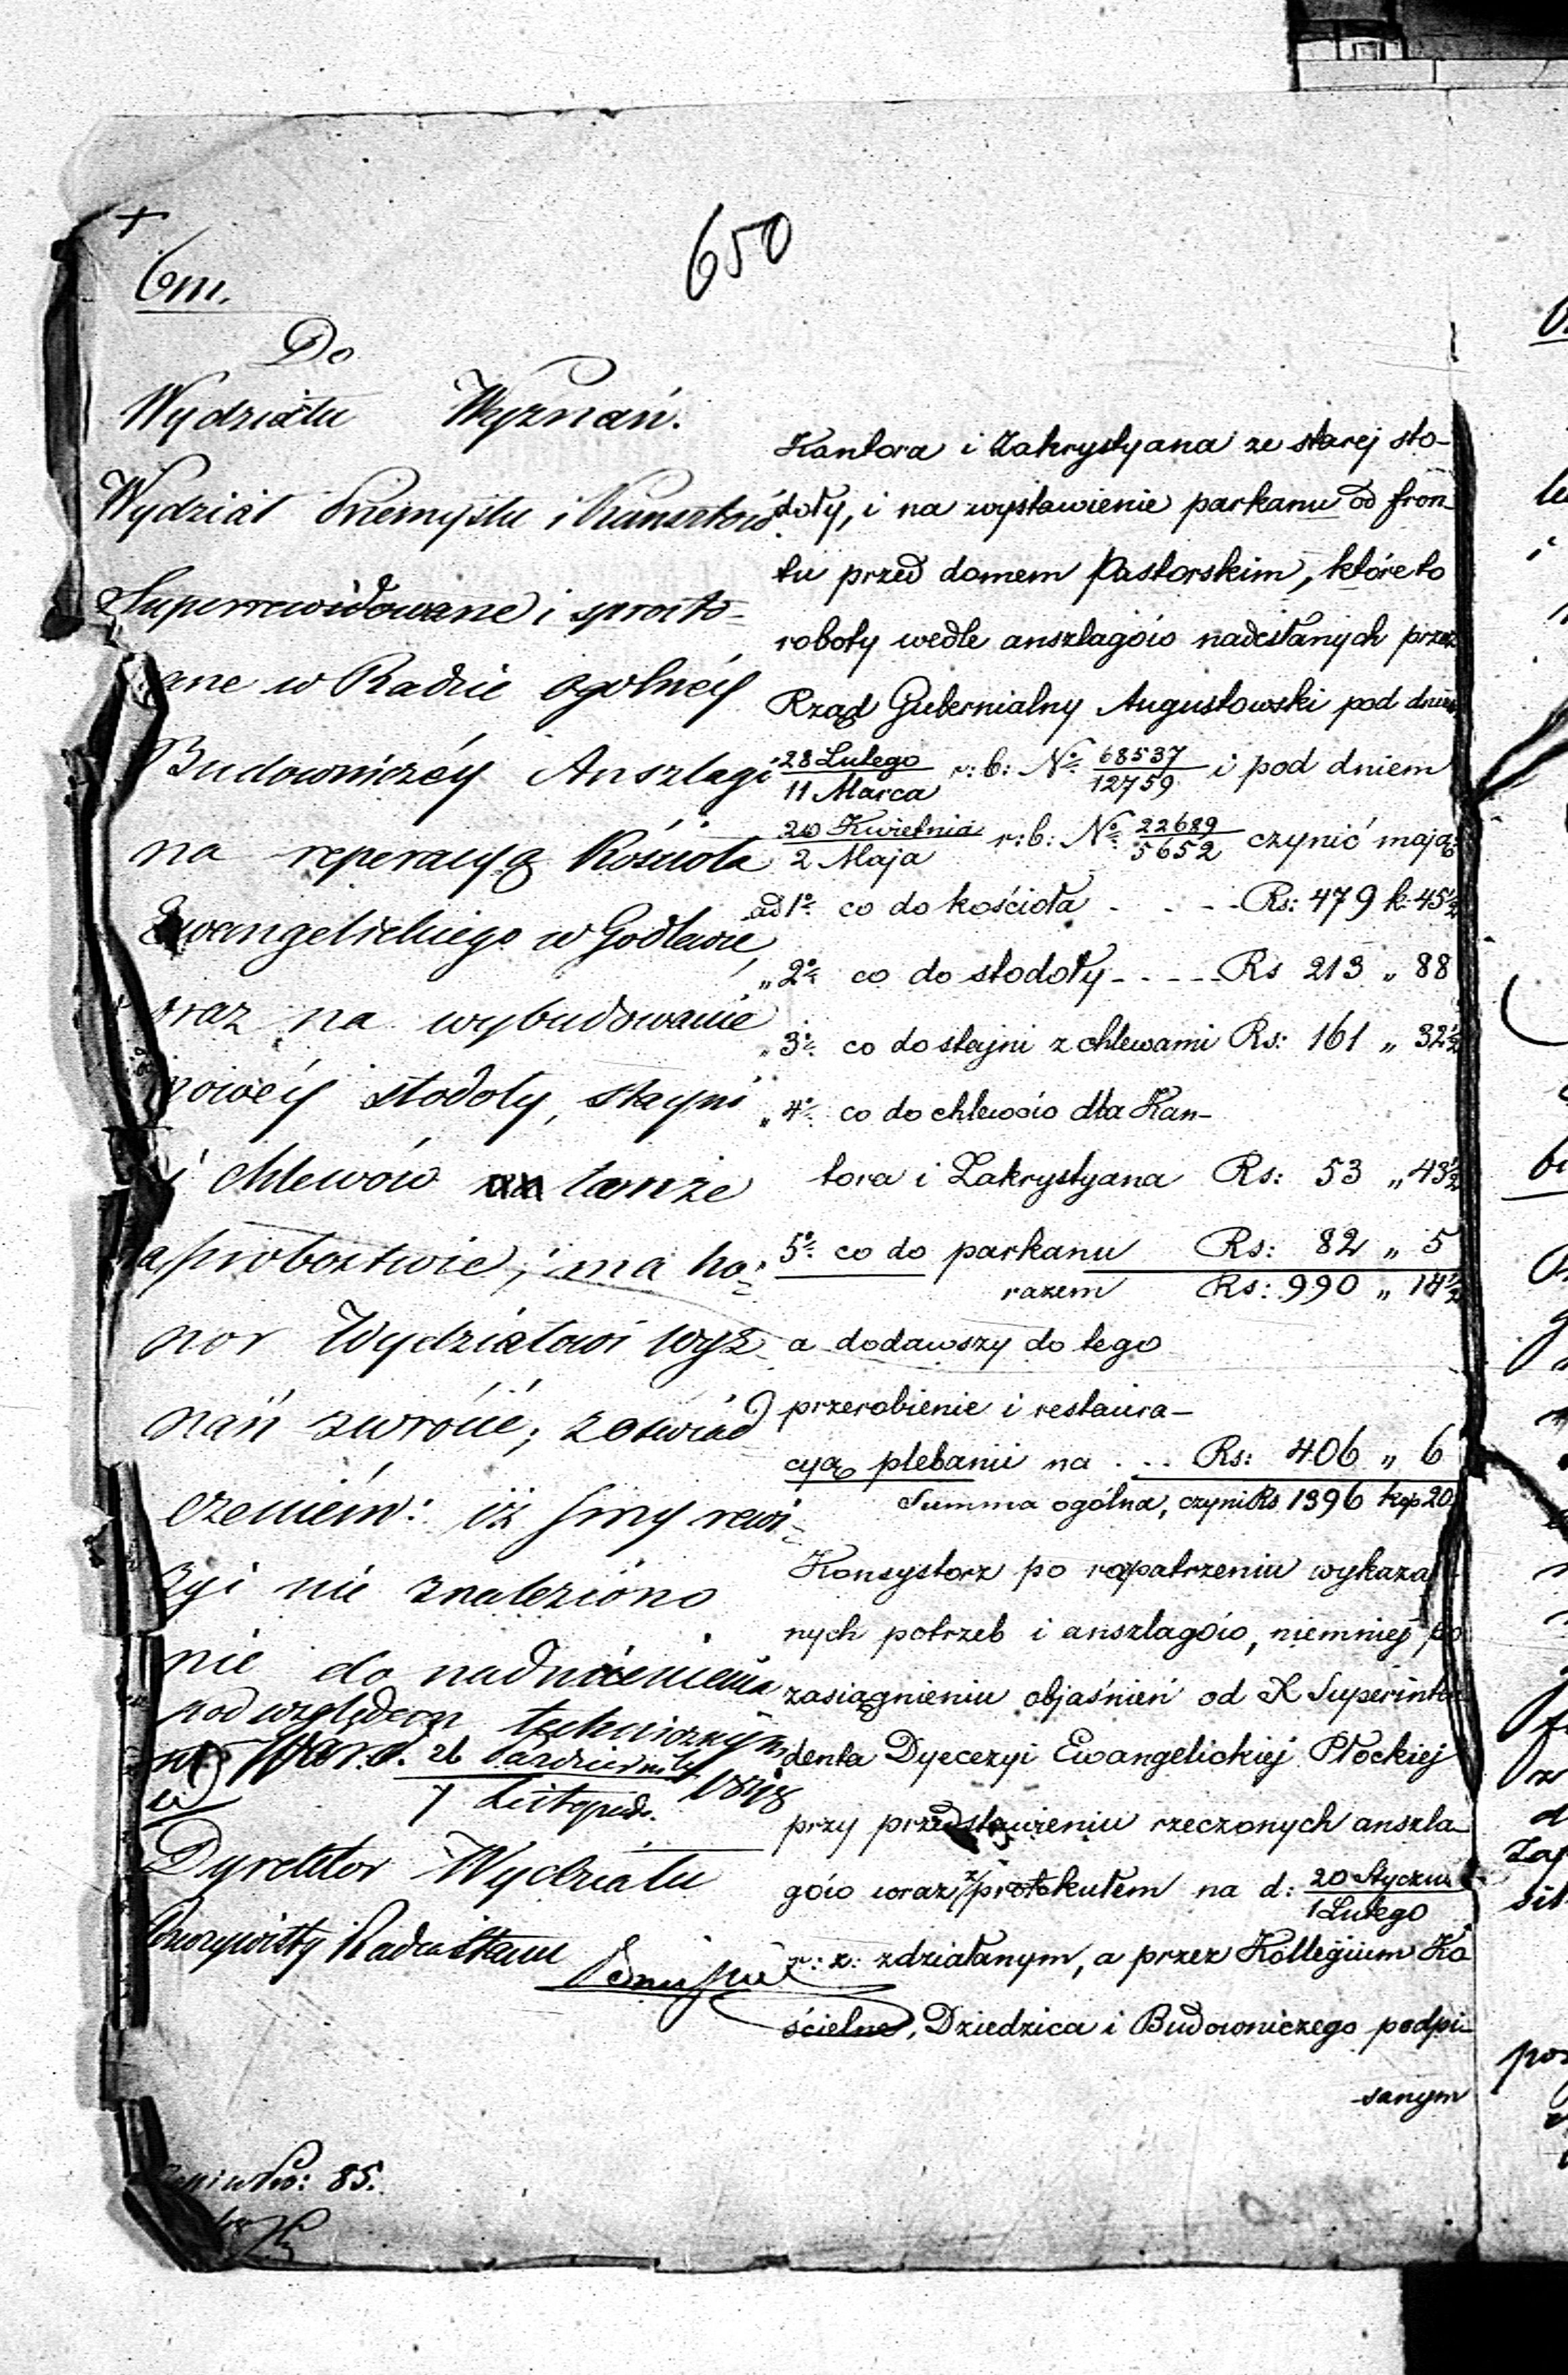 650
Do
Wydziału Wyznań.
Wydział Przemysłu i Kunsztów
Superrewidowane i sprosto-
ane w Radzie ogólnéy
Budowniczéy Anszlagi
na reperacyą Kościoła
Ewangelickiego w Godlewie,
oraz na wybudowanie
nowéy stodoły, stayni
i chlewów tamże
probostwie, ma ho-
nor Wydziałowi Wyz-
nań zwrócić; z oświad
czeniem: iż przy rewi-
zyi nie znaleziono
nic do nadmienienia
pod względem technicznym
26 Października 1848
7 Listopada.
Dyrektor Wydziału
Rzeczywisty Radca Stanu
85.
Kantora i Zakrystyana ze starej sto-
doły, i na wystawienie parkanu od fron-
tu przed domem Pastorskim, które to
roboty wedle anszlagów nadesłanych przez
Rząd Gubernialny Augustowski pod dniem
28 Lutego / 11 Marca r: b: No 68537 / 12759 i pod dniem
20 Kwietnia / 2 Maja r: b: No 22689 / 5652 czynić mają:
ad 1o co do kościoła - - - Rs: 479 k. 45½
„ 2o co do stodoły - - - - Rs 213 „ 88
„ 3o co do stajni z chlewami Rs: 161 „ 32½
„ 4o co do chlewów dla Kan-
tora i Zakrystyana Rs: 53 „ 43½
5o co do parkanu Rs: 82 „ 5
razem Rs: 990 „ 14½
a dodawszy do tego
przerobienie i restaura-
cyą plebanii na . . . Rs: 406 „ 6
Summa ogólna, czyni Rs 1396 kop 20½
Konsystorz po rozpatrzeniu wykaza-
nych potrzeb i anszlagów, niemniej po
zasiągnieniu objaśnień od X Superinten
denta Dyecezyi Ewangelickiej Płockiej
przy przedstawieniu rzeczonych anszla-
gów wraz z protokułem na d: 20 Stycznia / 1 Lutego
r: z: zdziałanym, a przez Kollegium Ko
ścielne, Dziedzica i Budowniczego podpi-
sanym